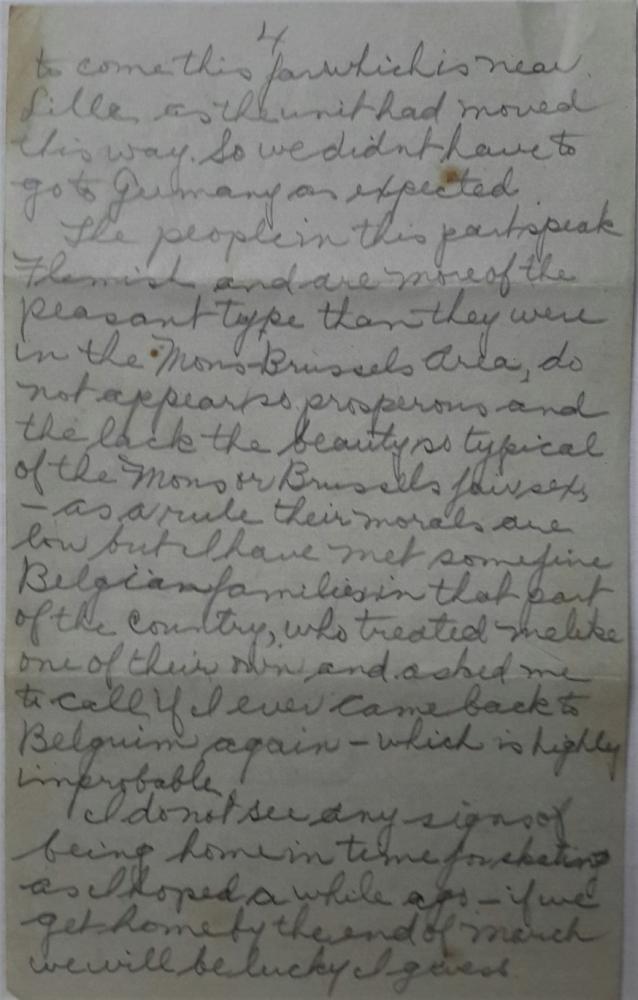 4
to come this far which is near
Lille, as the unit had moved
this way. So we didnt have to
go to Germany as expected.
The people in this part speak
Flemish and are more of the
peasant type than they were
in the Mons-Brussels Area, do
not appear so prosperous and
the lack the beauty so typical
of the Mons or Brussels fair sex,
- as a rule their morals are
low but I have met some fine
Belgian families in that part
of the country, who treated me like
one of their own and asked me
to call if I ever came back to
Belguim again - which is highly
improbable.
I do not see any signs of
being home in time for skating
as I hoped a while ago - if we
get home by the end of March
we will be lucky I guess